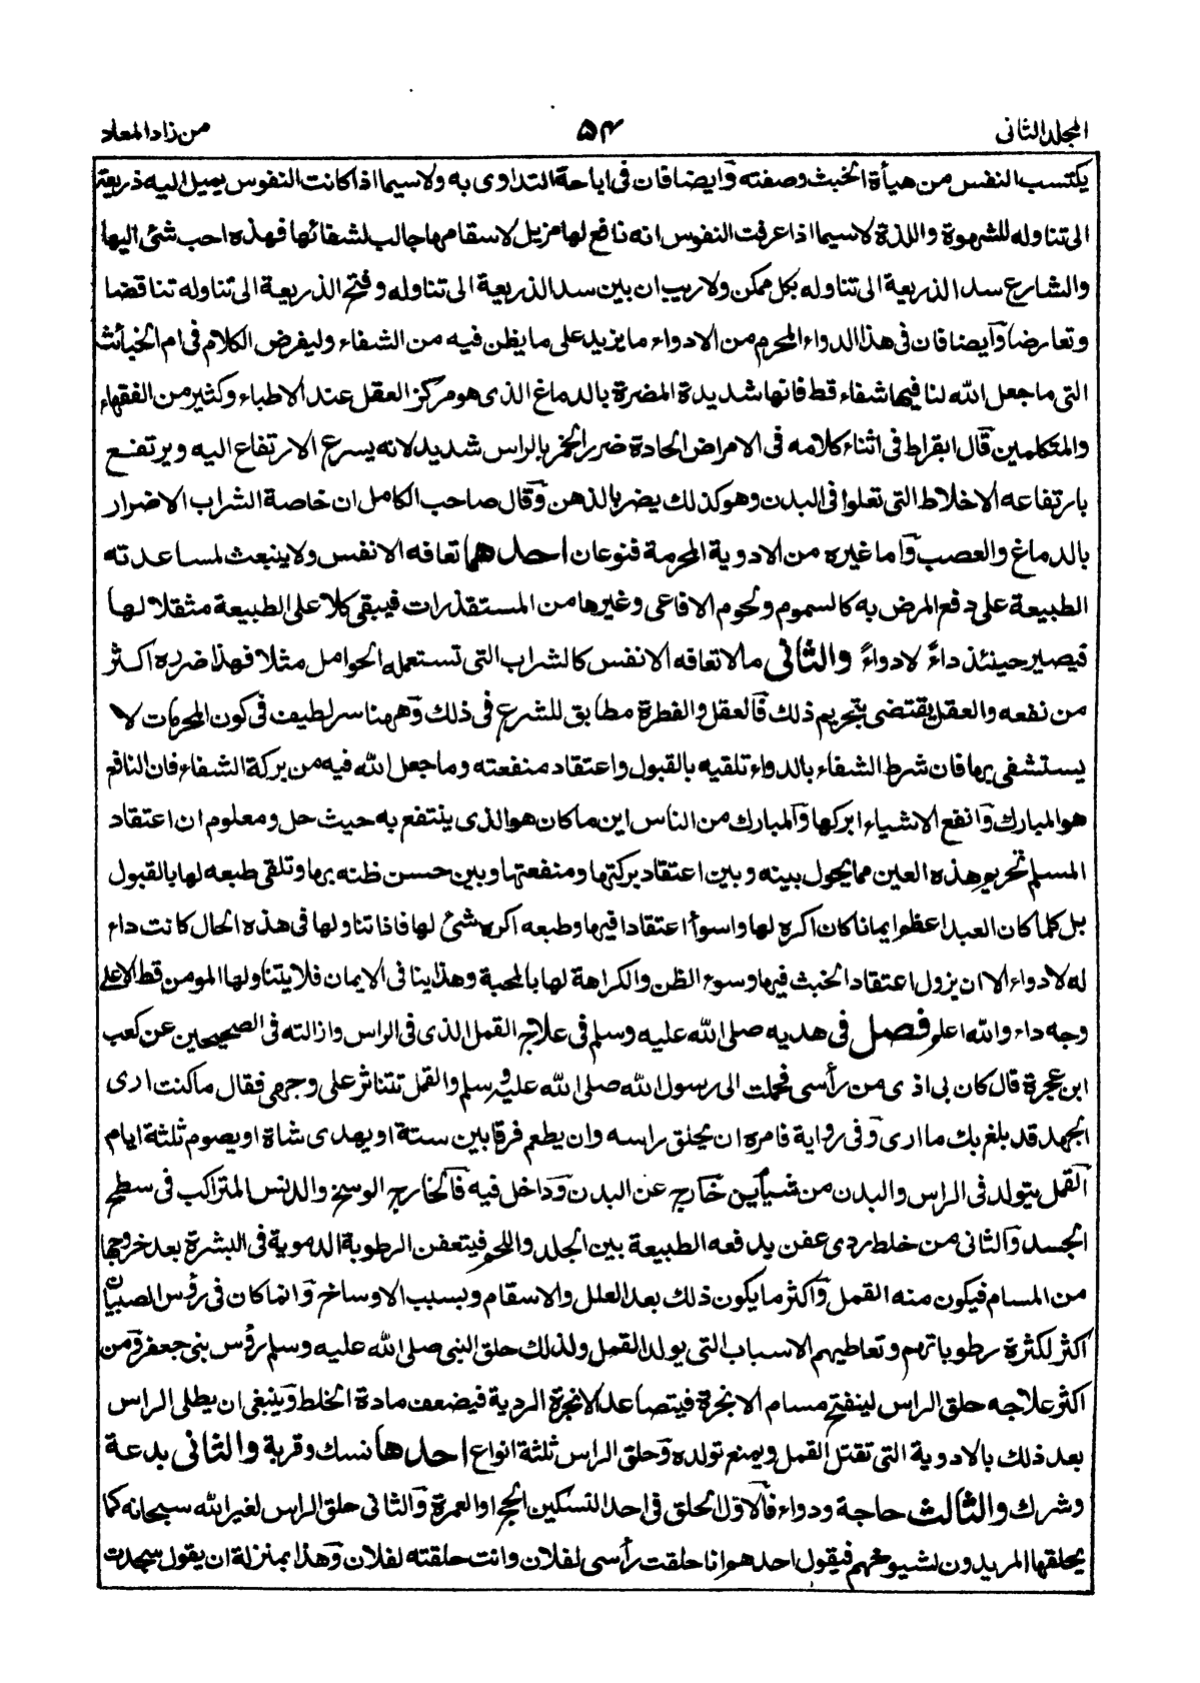 المجلد الثاني
۵۴
من زاد المعاد
يكتسب النفس من هيأة الخبث وصفته وايضا فان فى اباحة التداوى به ولاسيما اذا كانت النفوس يميل اليه ذريعة
الى تناوله للشهوة واللذة لاسيما اذا عرفت النفوس انه نافع لها مزيل لاسقامها جالب لشفائها فهذه احب شئ اليها
والشارع سد الذريعة الى تناوله بكل ممكن ولاريب ان بين سد الذريعة الى تناوله وفتح الذريعة الى تناوله تناقضا
وتعارضا وايضا فان فى هذا الدواء المحرم من الادواء ما يزيد على ما يظن فيه من الشفاء وليفرض الكلام فى ام الخبائث
التى ما جعل الله لنا فيها شفاء قط فانها شديدة المضرة بالدماغ الذى هو مركز العقل عند الاطباء وكثير من الفقهاء
والمتكلمين قال ابقراط فى اثناء كلامه فى الامراض الحادة ضرر الخمر بالراس شديد لانه يسرع الارتفاع اليه ويرتفع
بارتفاعه الاخلاط التى تعلوا فى البدن وهو كذلك يضر بالذهن وقال صاحب الكامل ان خاصة الشراب الاضرار
بالدماغ والعصب واما غيره من الادوية المحرمة فنوعان احدهما تعافه الانفس ولاينبعث لمساعدته
الطبيعة على دفع المرض به كالسموم ولحوم الافاعى وغيرها من المستقذرات فيبقى كلا على الطبيعة مثقلا لها
فيصير حينئذ داءً لادواءً والثانى مالاتعافه الانفس كالشراب التى تستعمله الحوامل مثلا فهذا ضرره اكثر
من نفعه والعقل يقتضى بتحريم ذلك فالعقل والفطرة مطابق للشرع فى ذلك وههنا سر لطيف فى كون المحرمات لا
يستشفى بها فان شرط الشفاء بالدواء تلقيه بالقبول واعتقاد منفعته وما جعل الله فيه من بركة الشفاء فان النافع
هو المبارك وانفع الاشياء ابركها والمبارك من الناس اين ما كان هو الذى ينتفع به حيث حل ومعلوم ان اعتقاد
المسلم تحريم هذه العين مما يحول بينه وبين اعتقاد بركتها ومنفعتها وبين حسن ظنه بها وتلقى طبعه لها بالقبول
بل كلما كان العبد اعظم ايمانا كان اكره لها واسوأ اعتقادا فيها وطبعه اكره شئ لها فاذا تناولها فى هذه الحال كانت داء
له لادواء الا ان يزول اعتقاد الخبث فيها وسوء الظن والكراهة لها بالمحبة وهذا ينافى الايمان فلا يتناولها المومن قط الا على
وجه داء والله اعلم فصل فى هديه صلى الله عليه وسلم فى علاج القمل الذى فى الراس وازالته فى الصحيحين عن كعب
ابن عجرة قال كان بى اذى من رأسى فحملت الى رسول الله صلى الله عليه وسلم والقمل تتناثر على وجهى فقال ما كنت ارى
الجهد قد بلغ بك ما ارى وفى رواية فامره ان يحلق راسه وان يطعم فرقا بين ستة او يهدى شاة او يصوم ثلثة ايام
القمل يتولد فى الراس والبدن من شيأين خارج عن البدن وداخل فيه فالخارج الوسخ والدنس المتراكب فى سطح
الجسد والثانى من خلط ردى عفن يدفعه الطبيعة بين الجلد واللحم فيتعفن الرطوبة الدموية فى البشرة بعد خروجها
من المسام فيكون منه القمل واكثر ما يكون ذلك بعد العلل والاسقام وبسبب الاوساخ وانما كان فى رؤس الصبيان
اكثر لكثرة رطوباتهم وتعاطيهم الاسباب التى يولد القمل ولذلك حلق النبى صلى الله عليه وسلم رؤس بنى جعفر ومن
اكثر علاجه حلق الراس لينفتح مسام الابخرة فيتصاعد الابخرة الردية فيضعف مادة الخلط وينبغى ان يطلى الراس
بعد ذلك بالادوية التى تقتل القمل ويمنع تولده وحلق الراس ثلثة انواع احدها نسك وقربة والثانى بدعة
وشرك والثالث حاجة ودواء فالاول الحلق فى احد النسكين الحج او العمرة والثانى حلق الراس لغير الله سبحانه كما
يحلقها المريدون لشيوخهم فيقول احدهم انا حلقت رأسى لفلان وانت حلقته لفلان وهذا بمنزلة ان يقول سجدت